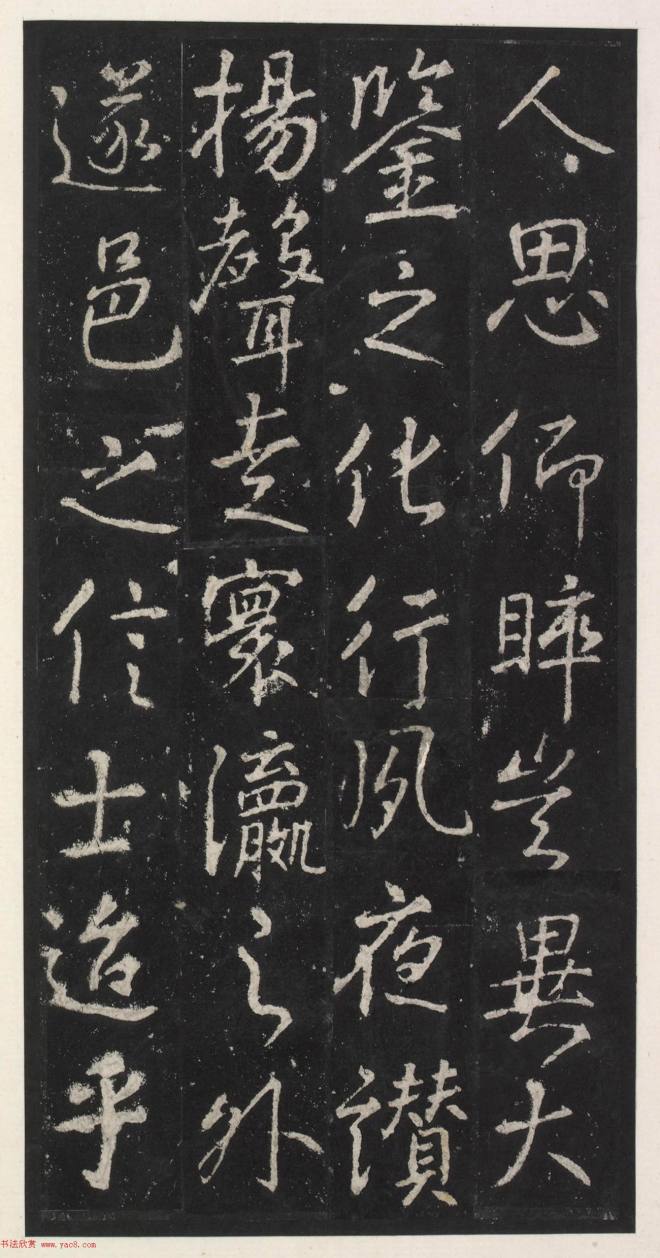 人思仰晬岂異大
鑒之化行夙夜讃
揚聲走寰瀛之外
遂邑之信士迨乎
书法欣赏 www.yac8.com